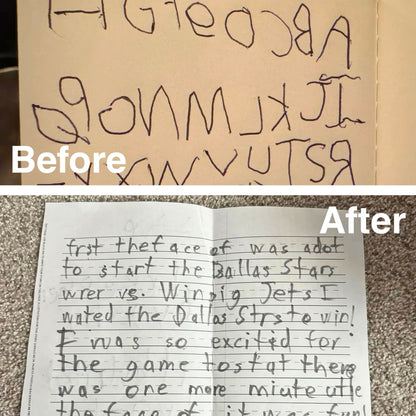 ABCDeFGH
IJKLMNOPQ
RSTUVWX
Before
After
frst the face of was adot
to start the Ballas Stars
wrer vs. Winpig Jets I
wated the Dallas Strs to win!
I was so excited for
the game tostat there
was one more miute utle
the face of it was fun